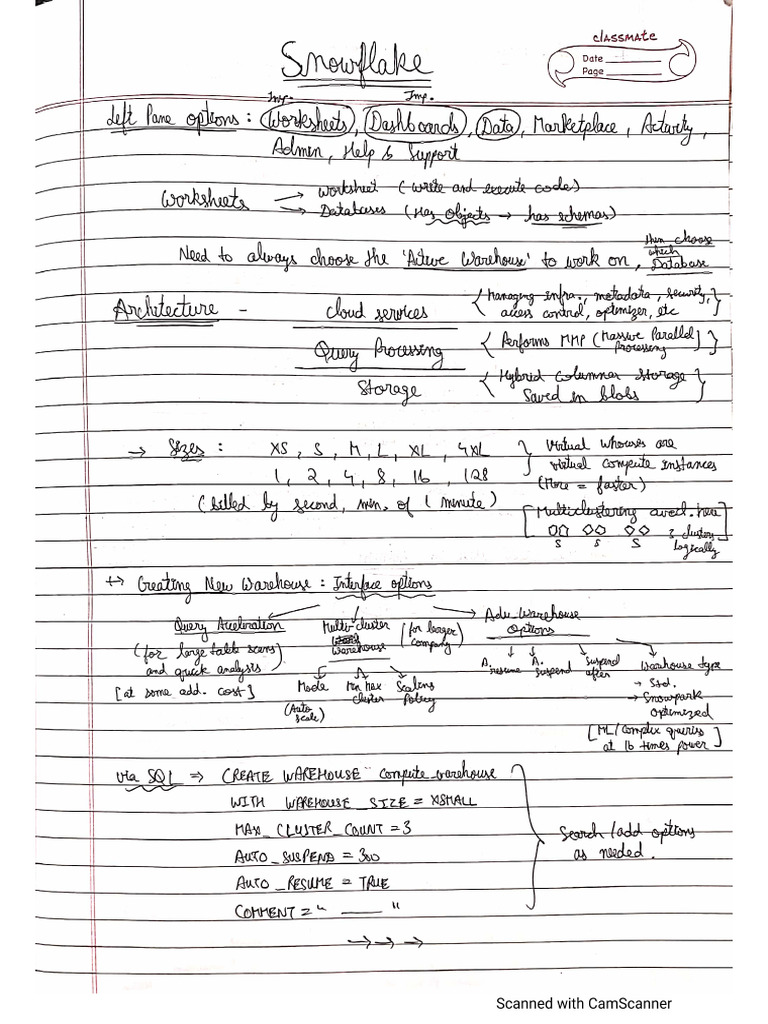 classmate
Date
Page
Snowflake
Imp. Imp.
Left Pane options : Worksheets, Dashboards, Data, Marketplace, Activity,
Admin, Help & Support
Worksheets → Worksheet (write and execute code)
→ Databases (Has Objects → has schemas)
Need to always choose the 'Active Warehouse' to work on, then choose which Database
Architecture - Cloud services {Managing infra., metadata, security, access control, optimizer, etc
Query Processing {Performs MMP (Massive Parallel Processing)}
Storage {Hybrid Columnar Storage Saved in blobs}
→ Sizes : XS, S, M, L, XL, 4XL } Virtual whouses are
1, 2, 4, 8, 16, 128 virtual compute instances
(billed by second, min. of 1 minute) (More = faster)
[Multiclustering avail. here]
S S S 3 clusters
logically
↦ Creating New Warehouse : Interface options
Query Acceleration
(for large table scans)
and quick analysis
[at some add. cost]
Multi-cluster
Warehouse
(for larger company)
Mode
(Auto scale)
Min Max
cluster
Scaling
Policy
Adv. Warehouse
Options
A. resume
A. Suspend
Suspend after
Warehouse type
→ Std.
→ Snowpark
optimized
[ML/complex queries
at 16 times power]
via SQL ⇒ CREATE WAREHOUSE compute_warehouse
WITH WAREHOUSE_SIZE = XSMALL
MAX_CLUSTER_COUNT = 3
AUTO_SUSPEND = 300
AUTO_RESUME = TRUE
COMMENT = " ____ "
Search/add options
as needed.
→ → →
Scanned with CamScanner